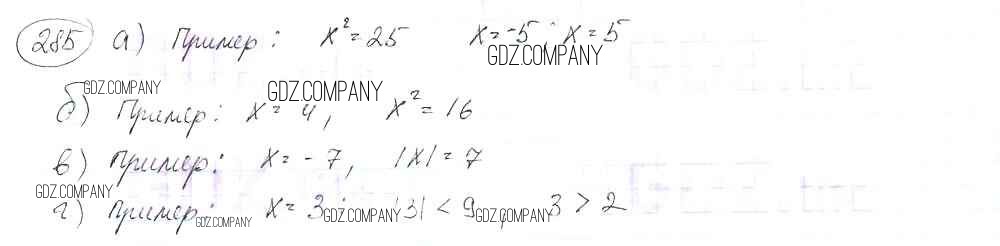 285 а) Пример: x² = 25 x = -5; x = 5
GDZ.COMPANY
GDZ.COMPANY GDZ.COMPANY
б) Пример: x = 4, x² = 16
в) Пример: x = -7, |x| = 7
GDZ.COMPANY
г) Пример: x = 3; |3| < 9, 3 > 2
GDZ.COMPANY GDZ.COMPANY GDZ.COMPANY